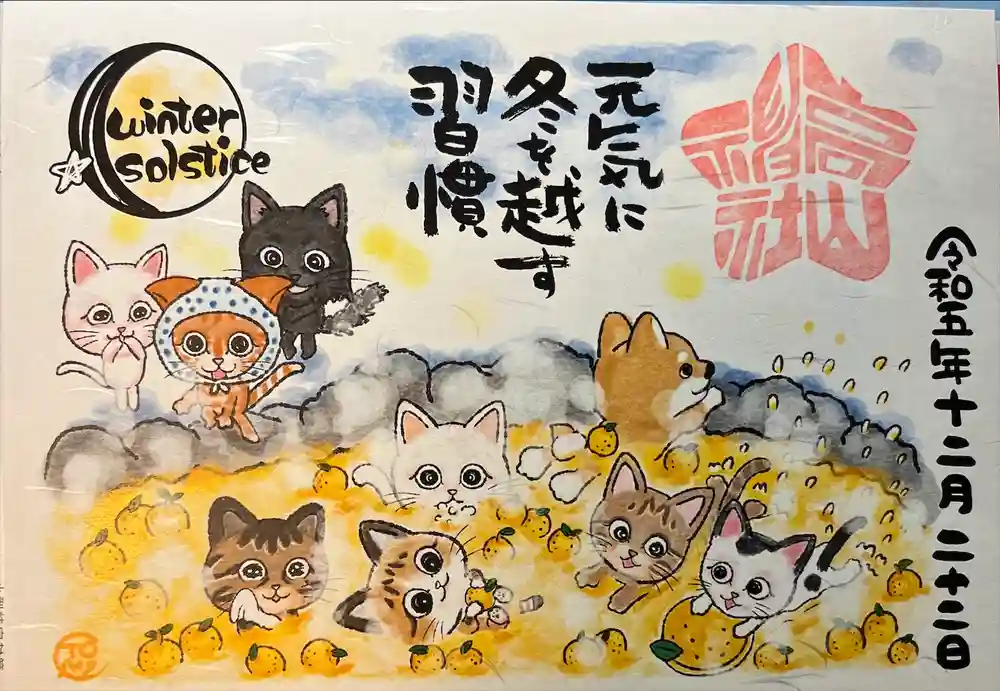 winter
solstice
元気に
冬を越す
習慣
令和五年十二月二十二日